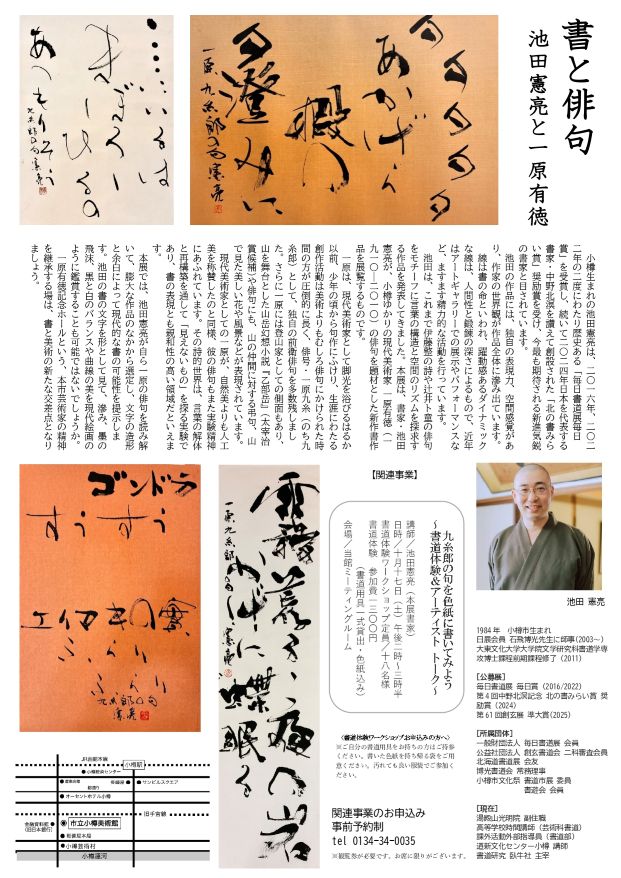 書と俳句
池田憲亮と一原有徳
小樽生まれの池田憲亮は、二〇一六年、二〇二
二年の二度にわたり歴史ある「毎日書道展毎日
賞」を受賞し、続いて二〇二四年日本を代表する
書家・中野北溟を讃えて創設された「北の書みら
い賞」奨励賞を受け、今最も期待される新進気鋭
の書家と目されています。
池田の作品には、独自の表現力、空間感覚があ
り、作家の世界観が作品全体に滲み出ています。
線は書の命といわれ、躍動感あるダイナミック
な線は、人間性と鍛錬の深さによるもので、近年
はアートギャラリーでの展示やパフォーマンスな
ど、ますます精力的な活動を行っています。
池田は、これまで伊藤整の詩や辻井卜童の俳句
をモチーフに言葉の構造と空間のリズムを探求す
る作品を発表してきました。本展は、書家・池田
憲亮が、小樽ゆかりの現代美術家 一原有徳(一
九一〇-二〇一〇)の俳句を題材とした新作書作
品を展覧するものです。
一原は、現代美術家として脚光を浴びるはるか
以前、少年の頃から句作にふけり、生涯にわたる
創作活動は美術よりもむしろ俳句にかけられた時
間の方が圧倒的に長く、俳号・一原九糸(のち九
糸郎)として、独自の前衛俳句を多数残しまし
た。さらに一原には登山家としての側面もあり、
山を舞台とした山岳幻想小説『乙部岳』(太宰治
賞候補)や俳句にも、山の仲間に対する弔句、山
で見た美しい花や風景などが表現されています。
現代美術家としての一原が、自然美よりも人工
美を称賛したのと同様、彼の俳句もまた実験精神
にあふれています。その詩的世界は、言葉の解体
と再構築を通して「見えないもの」を探る実験で
あり、書の表現とも親和性の高い領域だといえま
す。
本展では、池田憲亮が自ら一原の俳句を読み解
いて、膨大な作品のなかから選定し、文字の造形
と余白によって現代的な書の可能性を提示しま
す。池田の書の文字を形として見て、滲み、墨の
飛沫、黒と白のバランスや曲線の美を現代絵画の
ように鑑賞することも可能ではないでしょうか。
一原有徳記念ホールという、本市芸術家の精神
を継承する場は、書と美術の新たな交差点となり
ましょう。
ゴンドラ
すうすう
九糸郎の句
憲亮
【関連事業】
九糸郎の句を色紙に書いてみよう
~書道体験&アーティスト トーク~
講師/池田憲亮(本展書家)
日時/十月十七日(土)午後二時~三時半
書道体験ワークショップ定員/十八名様
書道体験 参加費一三〇〇円
(書道用具一式貸出・色紙込み)
会場/当館ミーティングルーム
<書道体験ワークショップお申込みの方へ>
※ご自分の書道用具をお持ちの方はご持参
ください。書いた色紙を持ち帰る袋をご用
意ください。汚れても良い服装でご参加く
ださい。
関連事業のお申込み
事前予約制
tel 0134-34-0035
※観覧券が必要です。お席に限りがございます。
池田 憲亮
1984年 小樽市生まれ
日展会員 石飛博光先生に師事(2003~)
大東文化大学大学院文学研究科書道学専
攻博士課程前期課程修了(2011)
【公募展】
毎日書道展 毎日賞(2016/2022)
第4回中野北溟記念 北の書みらい賞 奨
励賞(2024)
第61回創玄展 準大賞(2025)
【所属団体】
一般財団法人 毎日書道展 会員
公益社団法人 創玄書道会 二科審査会員
北海道書道展 会友
博光書道会 常務理事
小樽市文化祭 書道市展 委員
書遊会 会員
【現在】
湯殿山光明院 副住職
高等学校時間講師(芸術科書道)
課外活動外部指導員(書道部)
道新文化センター小樽 講師
書道研究 臥牛社 主宰
JR函館本線
小樽駅
サンビルスクエア
都通り
オーセントホテル小樽
旧手宮線
金融資料館
(旧日本銀行)
市立小樽美術館
小樽郵便局
小樽芸術村
小樽運河